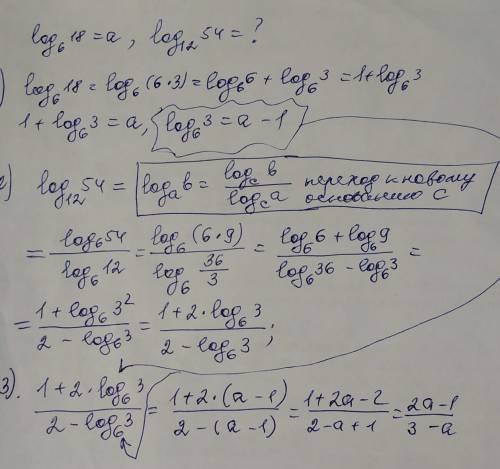 log₆18 = a, log₁₂54 = ?
) log₆18 = log₆(6·3) = log₆6 + log₆3 = 1 + log₆3
1 + log₆3 = a, log₆3 = a − 1
2) log₁₂54 = logₐb = log_c b / log_c a переход к новому основанию c
= log₆54 / log₆12 = log₆(6·9) / log₆(36/3) = (log₆6 + log₆9) / (log₆36 − log₆3) =
= (1 + log₆3²) / (2 − log₆3) = (1 + 2·log₆3) / (2 − log₆3);
3). (1 + 2·log₆3) / (2 − log₆3) = (1 + 2·(a − 1)) / (2 − (a − 1)) = (1 + 2a − 2) / (2 − a + 1) = (2a − 1) / (3 − a)